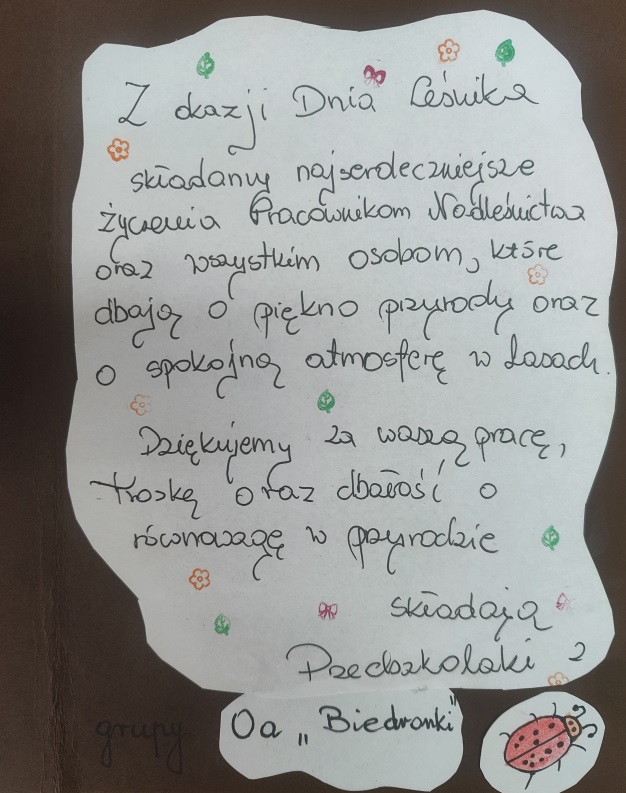 Z okazji Dnia Leśnika
składamy najserdeczniejsze
życzenia Pracownikom Nadleśnictwa
oraz wszystkim osobom, które
dbają o piękno przyrody oraz
o spokojną atmosferę w Lasach.
Dziękujemy za waszą pracę,
troskę oraz dbałość o
równowagę w przyrodzie
składają
Przedszkolaki z
grupy Oa „Biedronki"